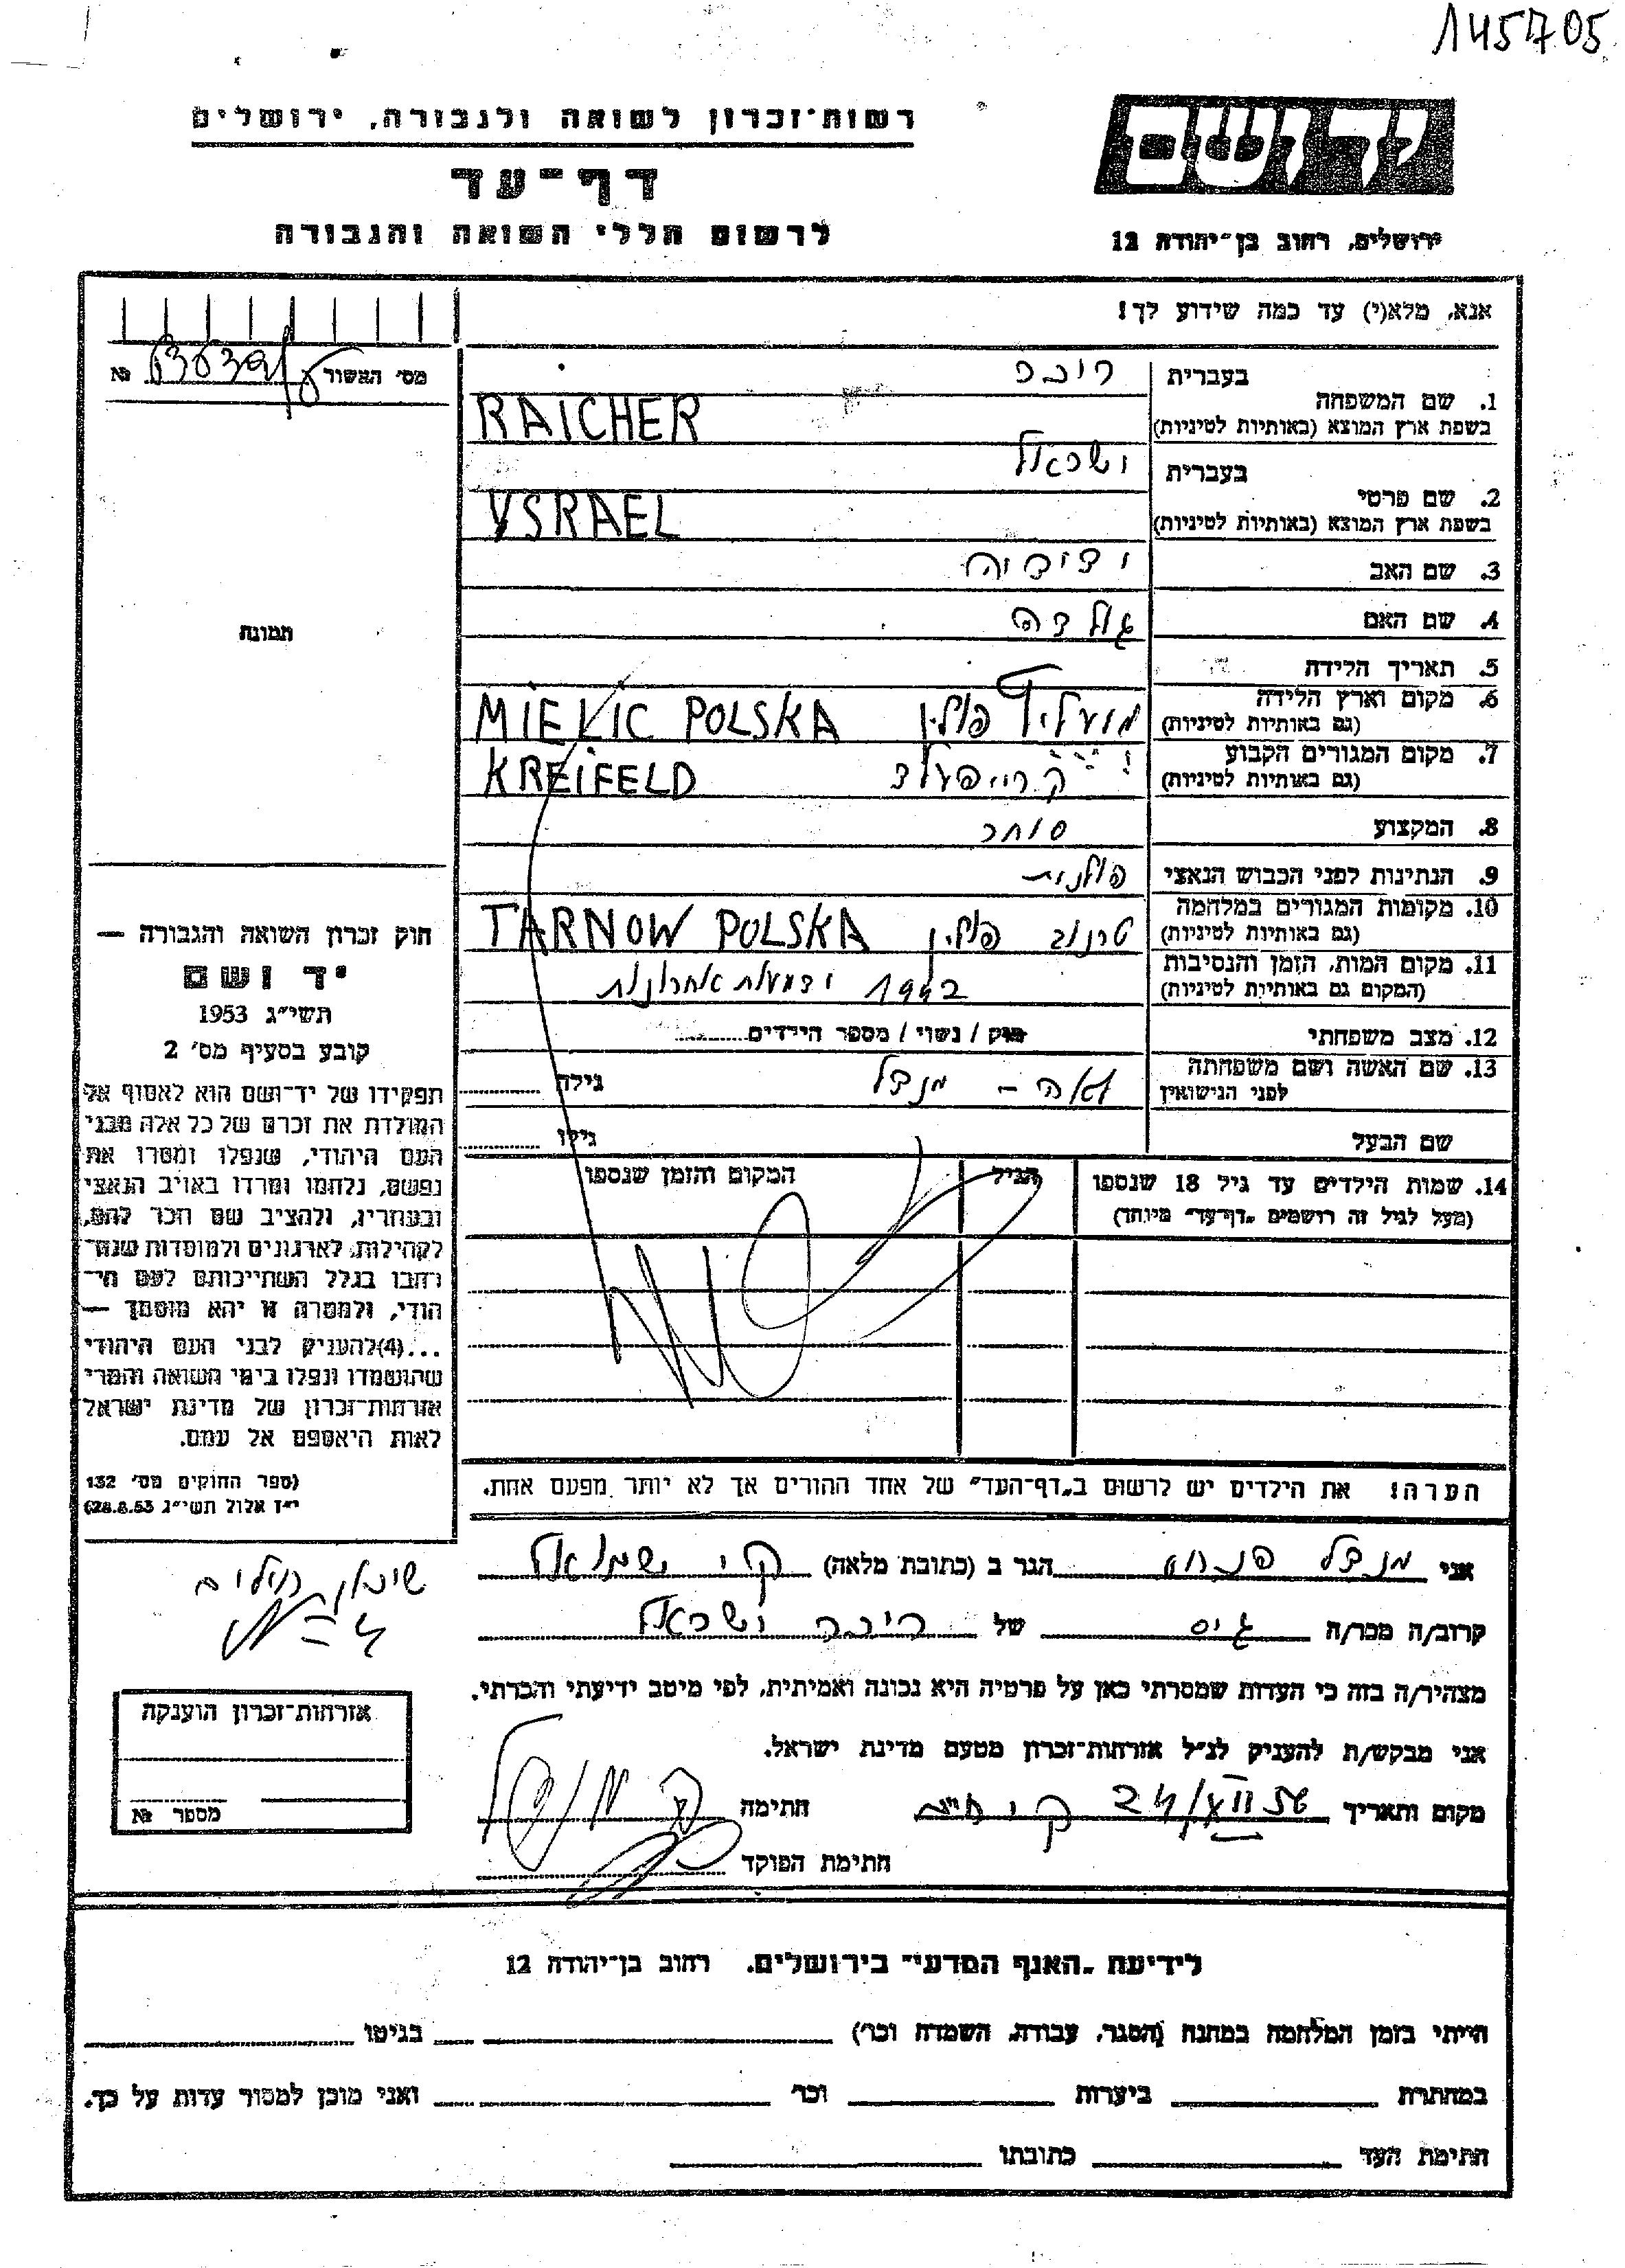 145705
רשות־זכרון לשואה ולגבורה, ירושלים
דף־עד
לרשום חללי השואה והגבורה
ידושם
ירושלים, רחוב בן־יהודה 12
אנא, מלא(י) עד כמה שידוע לך!
מס׳ האשור №
1. שם המשפחה
בעברית
בשפת ארץ המוצא (באותיות לטיניות) RAICHER
2. שם פרטי
בעברית ישראל
בשפת ארץ המוצא (באותיות לטיניות) YSRAEL
3. שם האב ידידיה
4. שם האם גולדה
5. תאריך הלידה
6. מקום וארץ הלידה
(גם באותיות לטיניות) פולין MIELIC POLSKA
7. מקום המגורים הקבוע
(גם באותיות לטיניות) קרייפעלד KREIFELD
8. המקצוע סוחר
9. הנתינות לפני הכבוש הנאצי פולנית
10. מקומות המגורים במלחמה
(גם באותיות לטיניות) טרנוב פולין TARNOW POLSKA
11. מקום המות, הזמן והנסיבות
(המקום גם באותיות לטיניות) 1942 ידיעות אחרונות
12. מצב משפחתי רווק / נשוי / מספר הילדים
13. שם האשה ושם משפחתה
לפני הנישואין לאה - מנדל גילה
שם הבעל גילו
14. שמות הילדים עד גיל 18 שנספו
(מעל לגיל זה רושמים „דף־עד״ מיוחד)
הגיל
המקום והזמן שנספו
הערה! את הילדים יש לרשום ב„דף־העד״ של אחד ההורים אך לא יותר מפעם אחת.
תמונה
חוק זכרון השואה והגבורה —
יד ושם
תשי״ג 1953
קובע בסעיף מס׳ 2
תפקידו של יד־ושם הוא לאסוף אל
המולדת את זכרם של כל אלה מבני
העם היהודי, שנפלו ומסרו את
נפשם, נלחמו ומרדו באויב הנאצי
ובעוזריו, ולהציב שם וזכר להם,
לקהילות, לארגונים ולמוסדות שנח־
רבו בגלל השתייכותם לעם הי־
הודי, ולמטרה זו יהא מוסמך —
...(4)להעניק לבני העם היהודי
שהושמדו ונפלו בימי השואה והמרי
אזרחות־זכרון של מדינת ישראל
לאות היאספם אל עמם.
(ספר החוקים מס׳ 132
י״ז אלול תשי״ג 28.8.53)
אני מנדל פנחס הגר ב (כתובת מלאה) ק׳ שמואל
קרוב/ה מכר/ה גיס של ישראל
מצהיר/ה בזה כי העדות שמסרתי כאן על פרטיה היא נכונה ואמיתית, לפי מיטב ידיעתי והכרתי.
אני מבקש/ת להעניק לנ״ל אזרחות־זכרון מטעם מדינת ישראל.
מקום ותאריך 24/XII 56 חתימה
חתימת הפוקד
אזרחות־זכרון הוענקה
מספר №
לידיעת „האגף המדעי״ בירושלים. רחוב בן־יהודה 12
הייתי בזמן המלחמה במחנה (הסגר, עבודה, השמדה וכו׳) בגיטו
במחתרת ביערות וכו׳ ואני מוכן למסור עדות על כך.
חתימת העד כתובתו